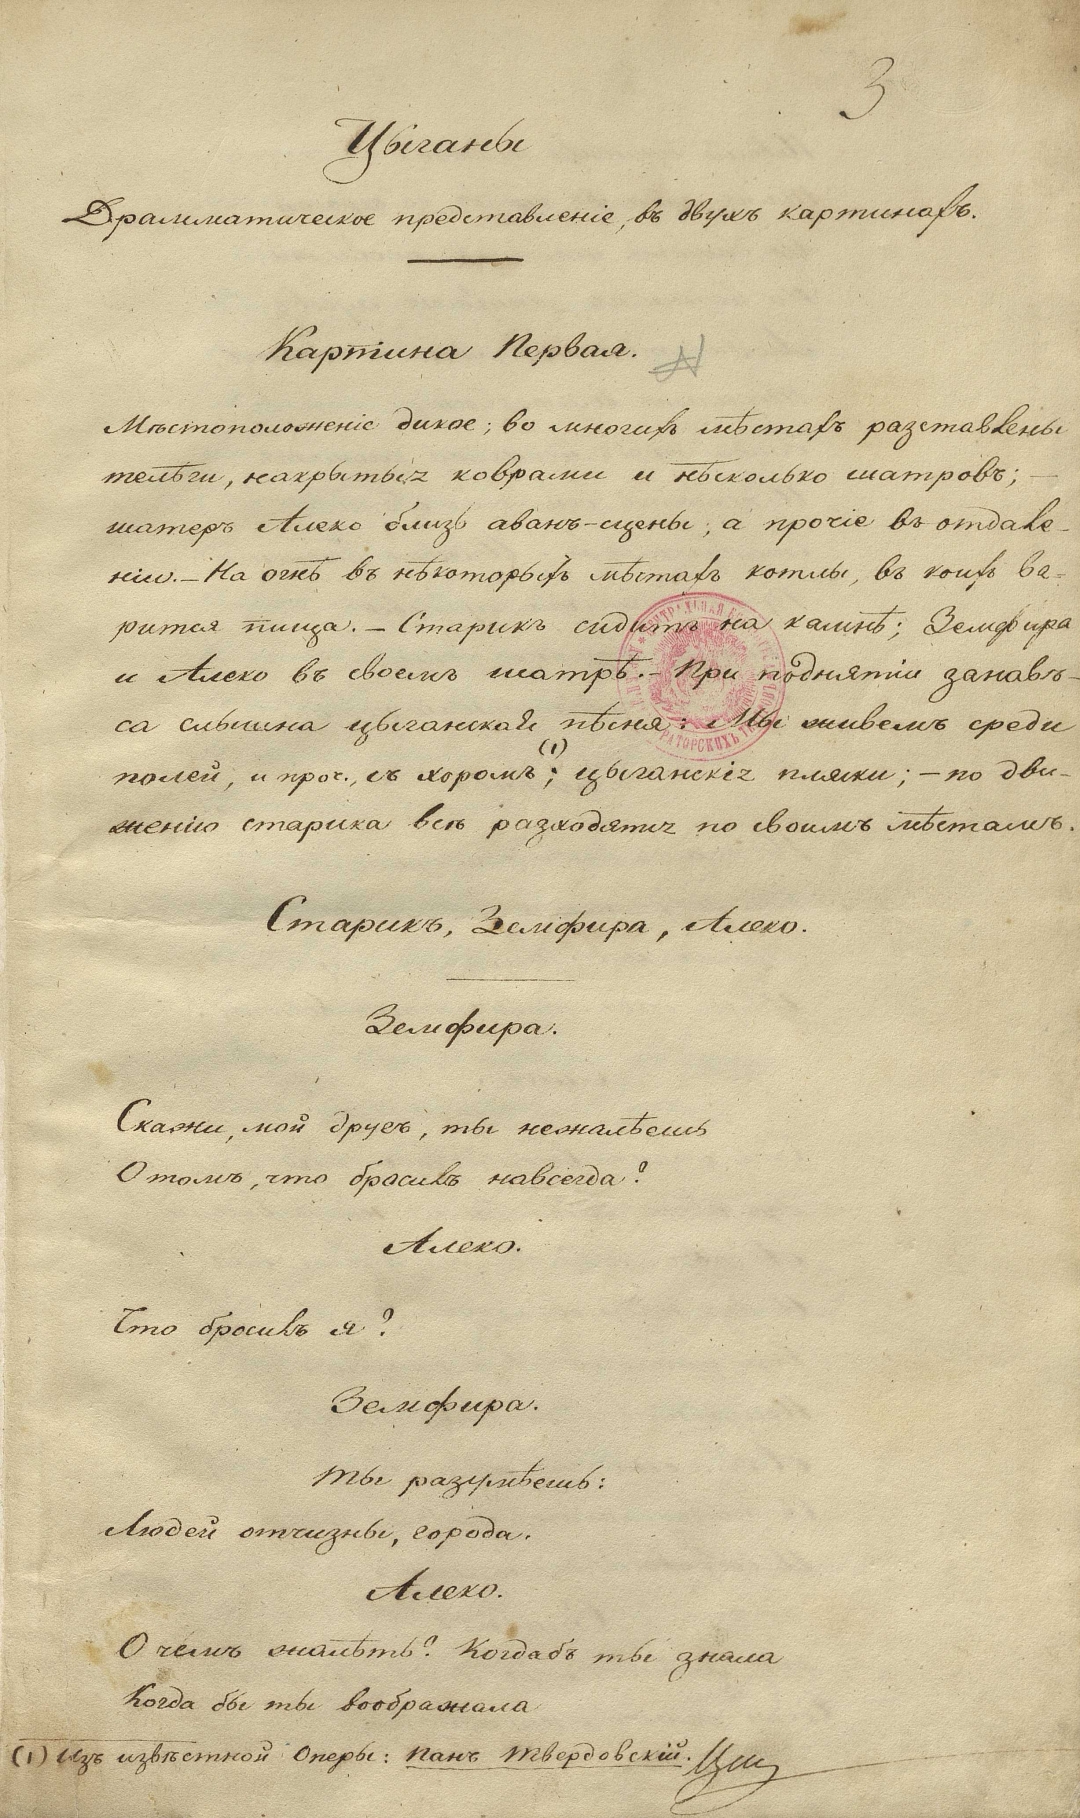 3
Цыганы
Драмматическое представленіе, въ двухъ картинахъ.
Картина Первая.
Мѣстоположеніе дикое; во многихъ мѣстахъ разставлены
телѣги, накрытыя коврами и нѣсколько шатровъ; —
шатеръ Алеко близь аванъ-сцены, а прочіе въ отдале-
ніи. — На огнѣ въ нѣкоторыхъ мѣстахъ котлы, въ коихъ ва-
рится пища. — Старикъ сидитъ на камнѣ; Земфира
и Алеко въ своемъ шатрѣ. — При поднятіи занавѣ-
са слышна цыганская пѣсня: Мы живемъ среди
полей, и проч., съ хоромъ (1); цыганскія пляски; — по дви-
женію старика всѣ разходятся по своимъ мѣстамъ.
Старикъ, Земфира, Алеко.
Земфира.
Скажи, мой другъ, ты нежалѣешь
О томъ, что бросилъ навсегда?
Алеко.
Что бросилъ я?
Земфира.
Ты разумѣешь:
Людей отчизны, города.
Алеко.
О чемъ жалѣть? Когдабъ ты знала
Когда бы ты воображала
(1) Изъ извѣстной Оперы: Панъ Твердовскій.